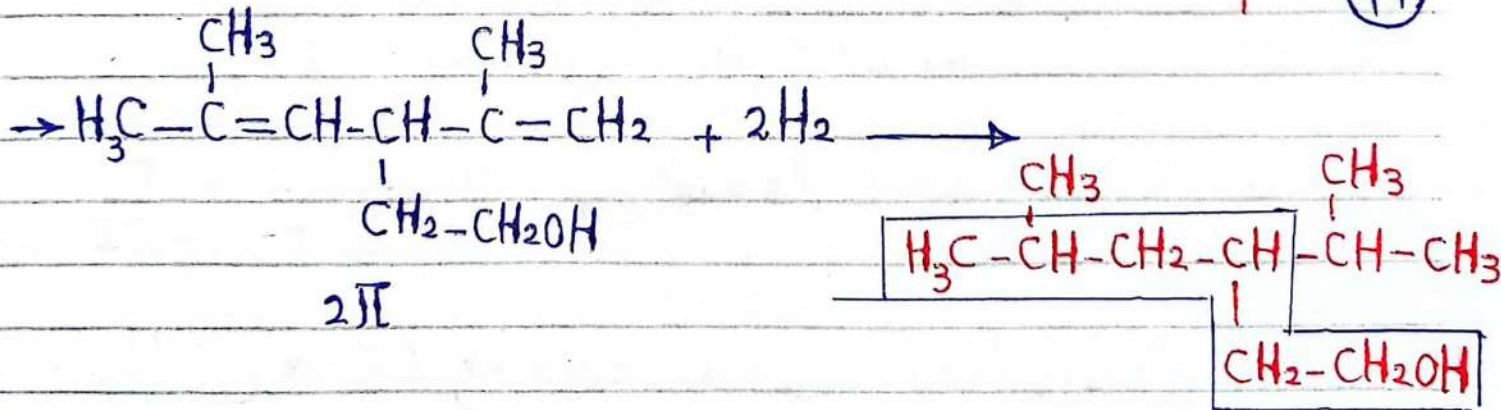 CH3 CH3
→ H3C-C=CH-CH-C=CH2 + 2H2 →
CH2-CH2OH
2π
CH3 CH3
H3C-CH-CH2-CH-CH-CH3
CH2-CH2OH